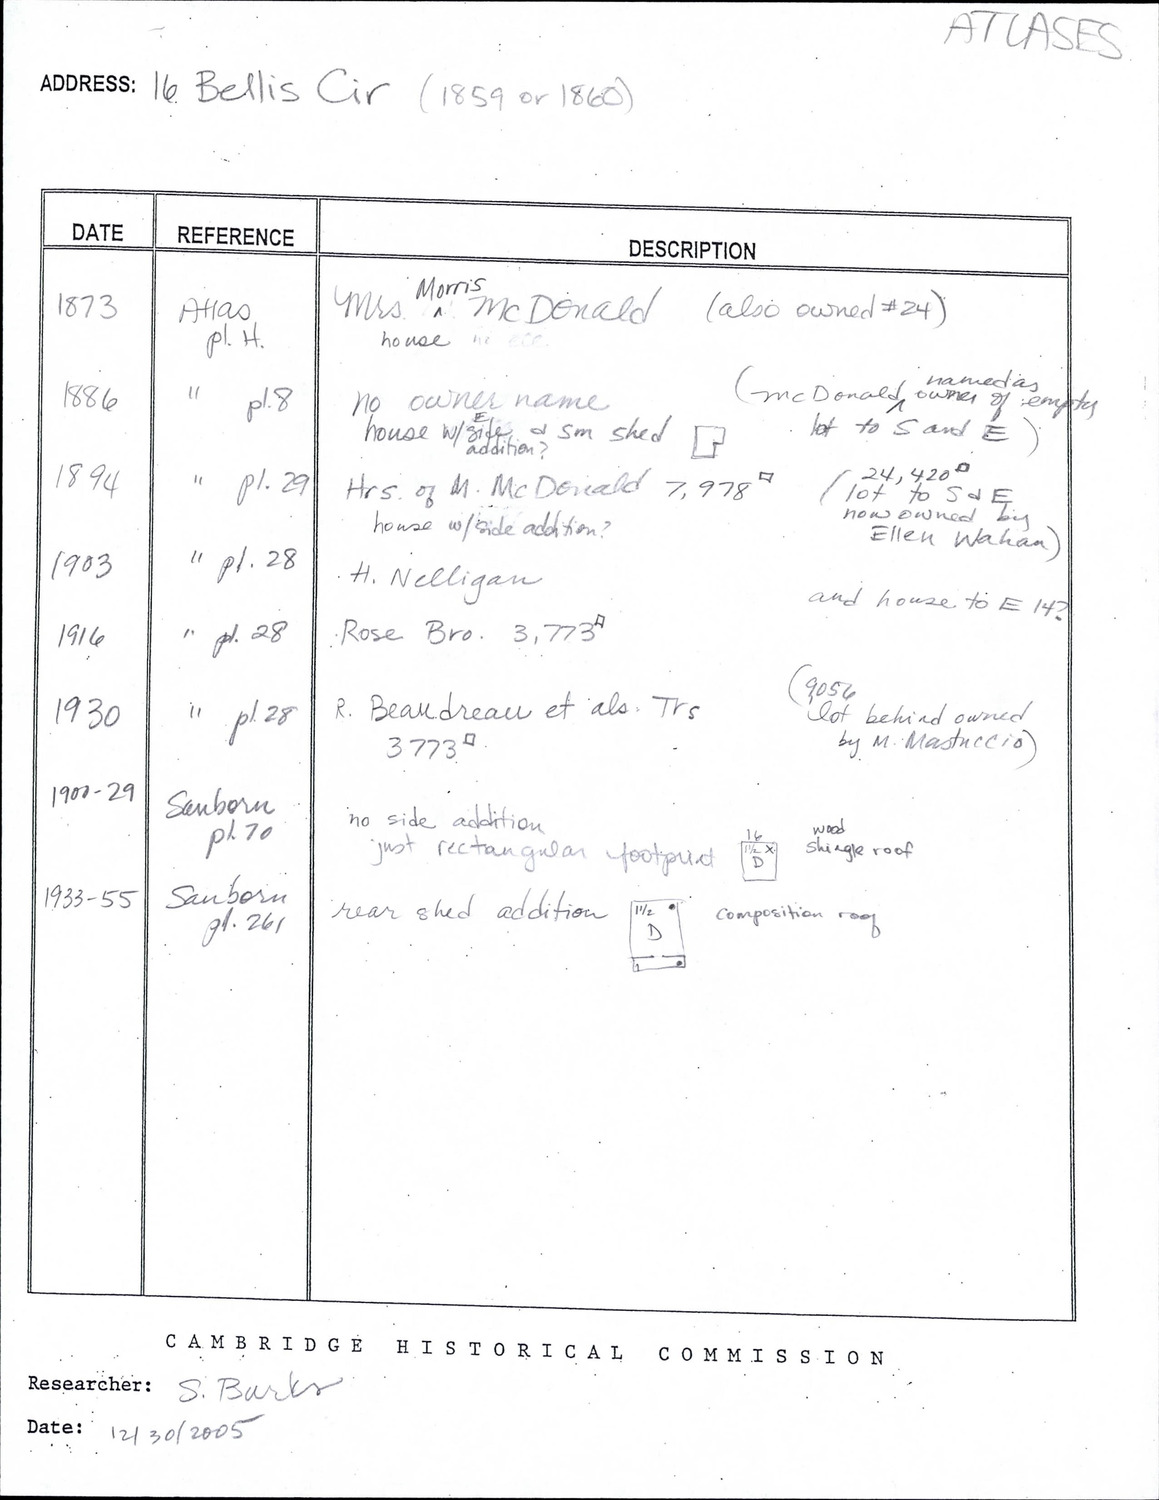 ATLASES
ADDRESS: 16 Bellis Cir (1859 or 1860)
DATE REFERENCE DESCRIPTION
1873 Atlas pl. H. Mrs. ^ Morris McDonald (also owned #24)
house
1886 " pl. 8 no owner name (McDonald ^ named as owner of empty
house w/ side E addition? & sm shed lot to S and E)
1894 " pl. 29 Hrs. of M. McDonald 7,978 (24,420
house w/ side addition? lot to S & E
now owned by
Ellen Wahan)
1903 " pl. 28 H. Nelligan
and house to E 14?
1916 " pl. 28 Rose Bro. 3,773
1930 " pl. 28 R. Beaudreau et als. Trs (9056
3773 lot behind owned
by M. Mastuccio)
1900-29 Sanborn pl. 70 no side addition
just rectangular footprint 16 1 1/2 x D wood shingle roof
1933-55 Sanborn pl. 261 rear shed addition 1 1/2 D 1 composition roof
CAMBRIDGE HISTORICAL COMMISSION
Researcher: S. Burks
Date: 12/30/2005